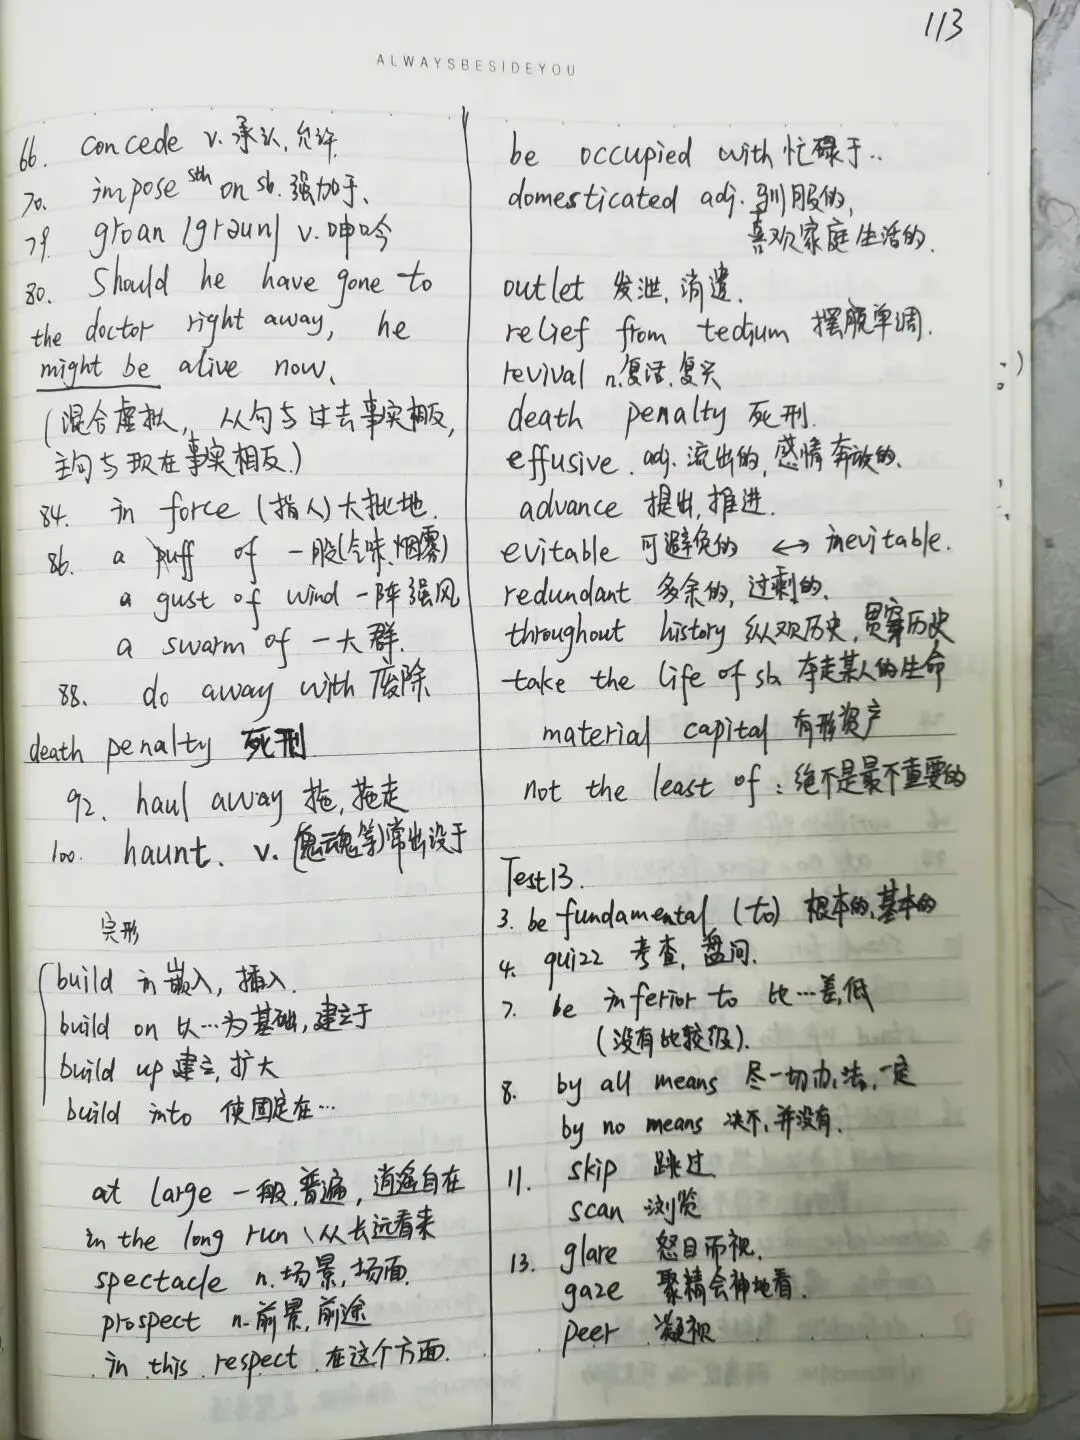 113
ALWAYSBESIDEYOU
66. concede v. 承认, 允许
70. impose sth on sb. 强加于、
79. groan /graun/ v. 呻吟
80. Should he have gone to
the doctor right away, he
might be alive now.
(混合虚拟, 从句与过去事实相反,
主句与现在事实相反.)
84. in force (指人) 大批地.
86. a puff of 一股(气味, 烟雾)
a gust of wind 一阵强风
a swarm of 一大群.
88. do away with 废除
death penalty 死刑
92. haul away 拖, 拖走
100. haunt. v. (鬼魂等)常出没于
完形
build in 嵌入, 插入.
build on 以…为基础, 建立于
build up 建立, 扩大
build into 使固定在…
at large 一般, 普遍, 逍遥自在
in the long run 从长远看来
spectacle n. 场景, 场面.
prospect n. 前景, 前途
in this respect 在这个方面.
be occupied with 忙碌于..
domesticated adj. 驯服的,
喜欢家庭生活的.
outlet 发泄, 消遣.
relief from tedium 摆脱单调.
revival n. 复活. 复兴
death penalty 死刑.
effusive. adj. 流出的, 感情奔放的.
advance 提出, 推进.
evitable 可避免的 ↔ inevitable.
redundant 多余的, 过剩的.
throughout history 纵观历史, 贯穿历史
take the life of sb. 夺走某人的生命
material capital 有形资产
not the least of: 绝不是最不重要的
Test13.
3. be fundamental (to) 根本的, 基本的
4. quizz 考查, 盘问.
7. be inferior to 比…差, 低
(没有比较级).
8. by all means 尽一切办法, 一定
by no means 决不, 并没有.
11. skip 跳过
scan 浏览
13. glare 怒目而视.
gaze 聚精会神地看.
peer 凝视